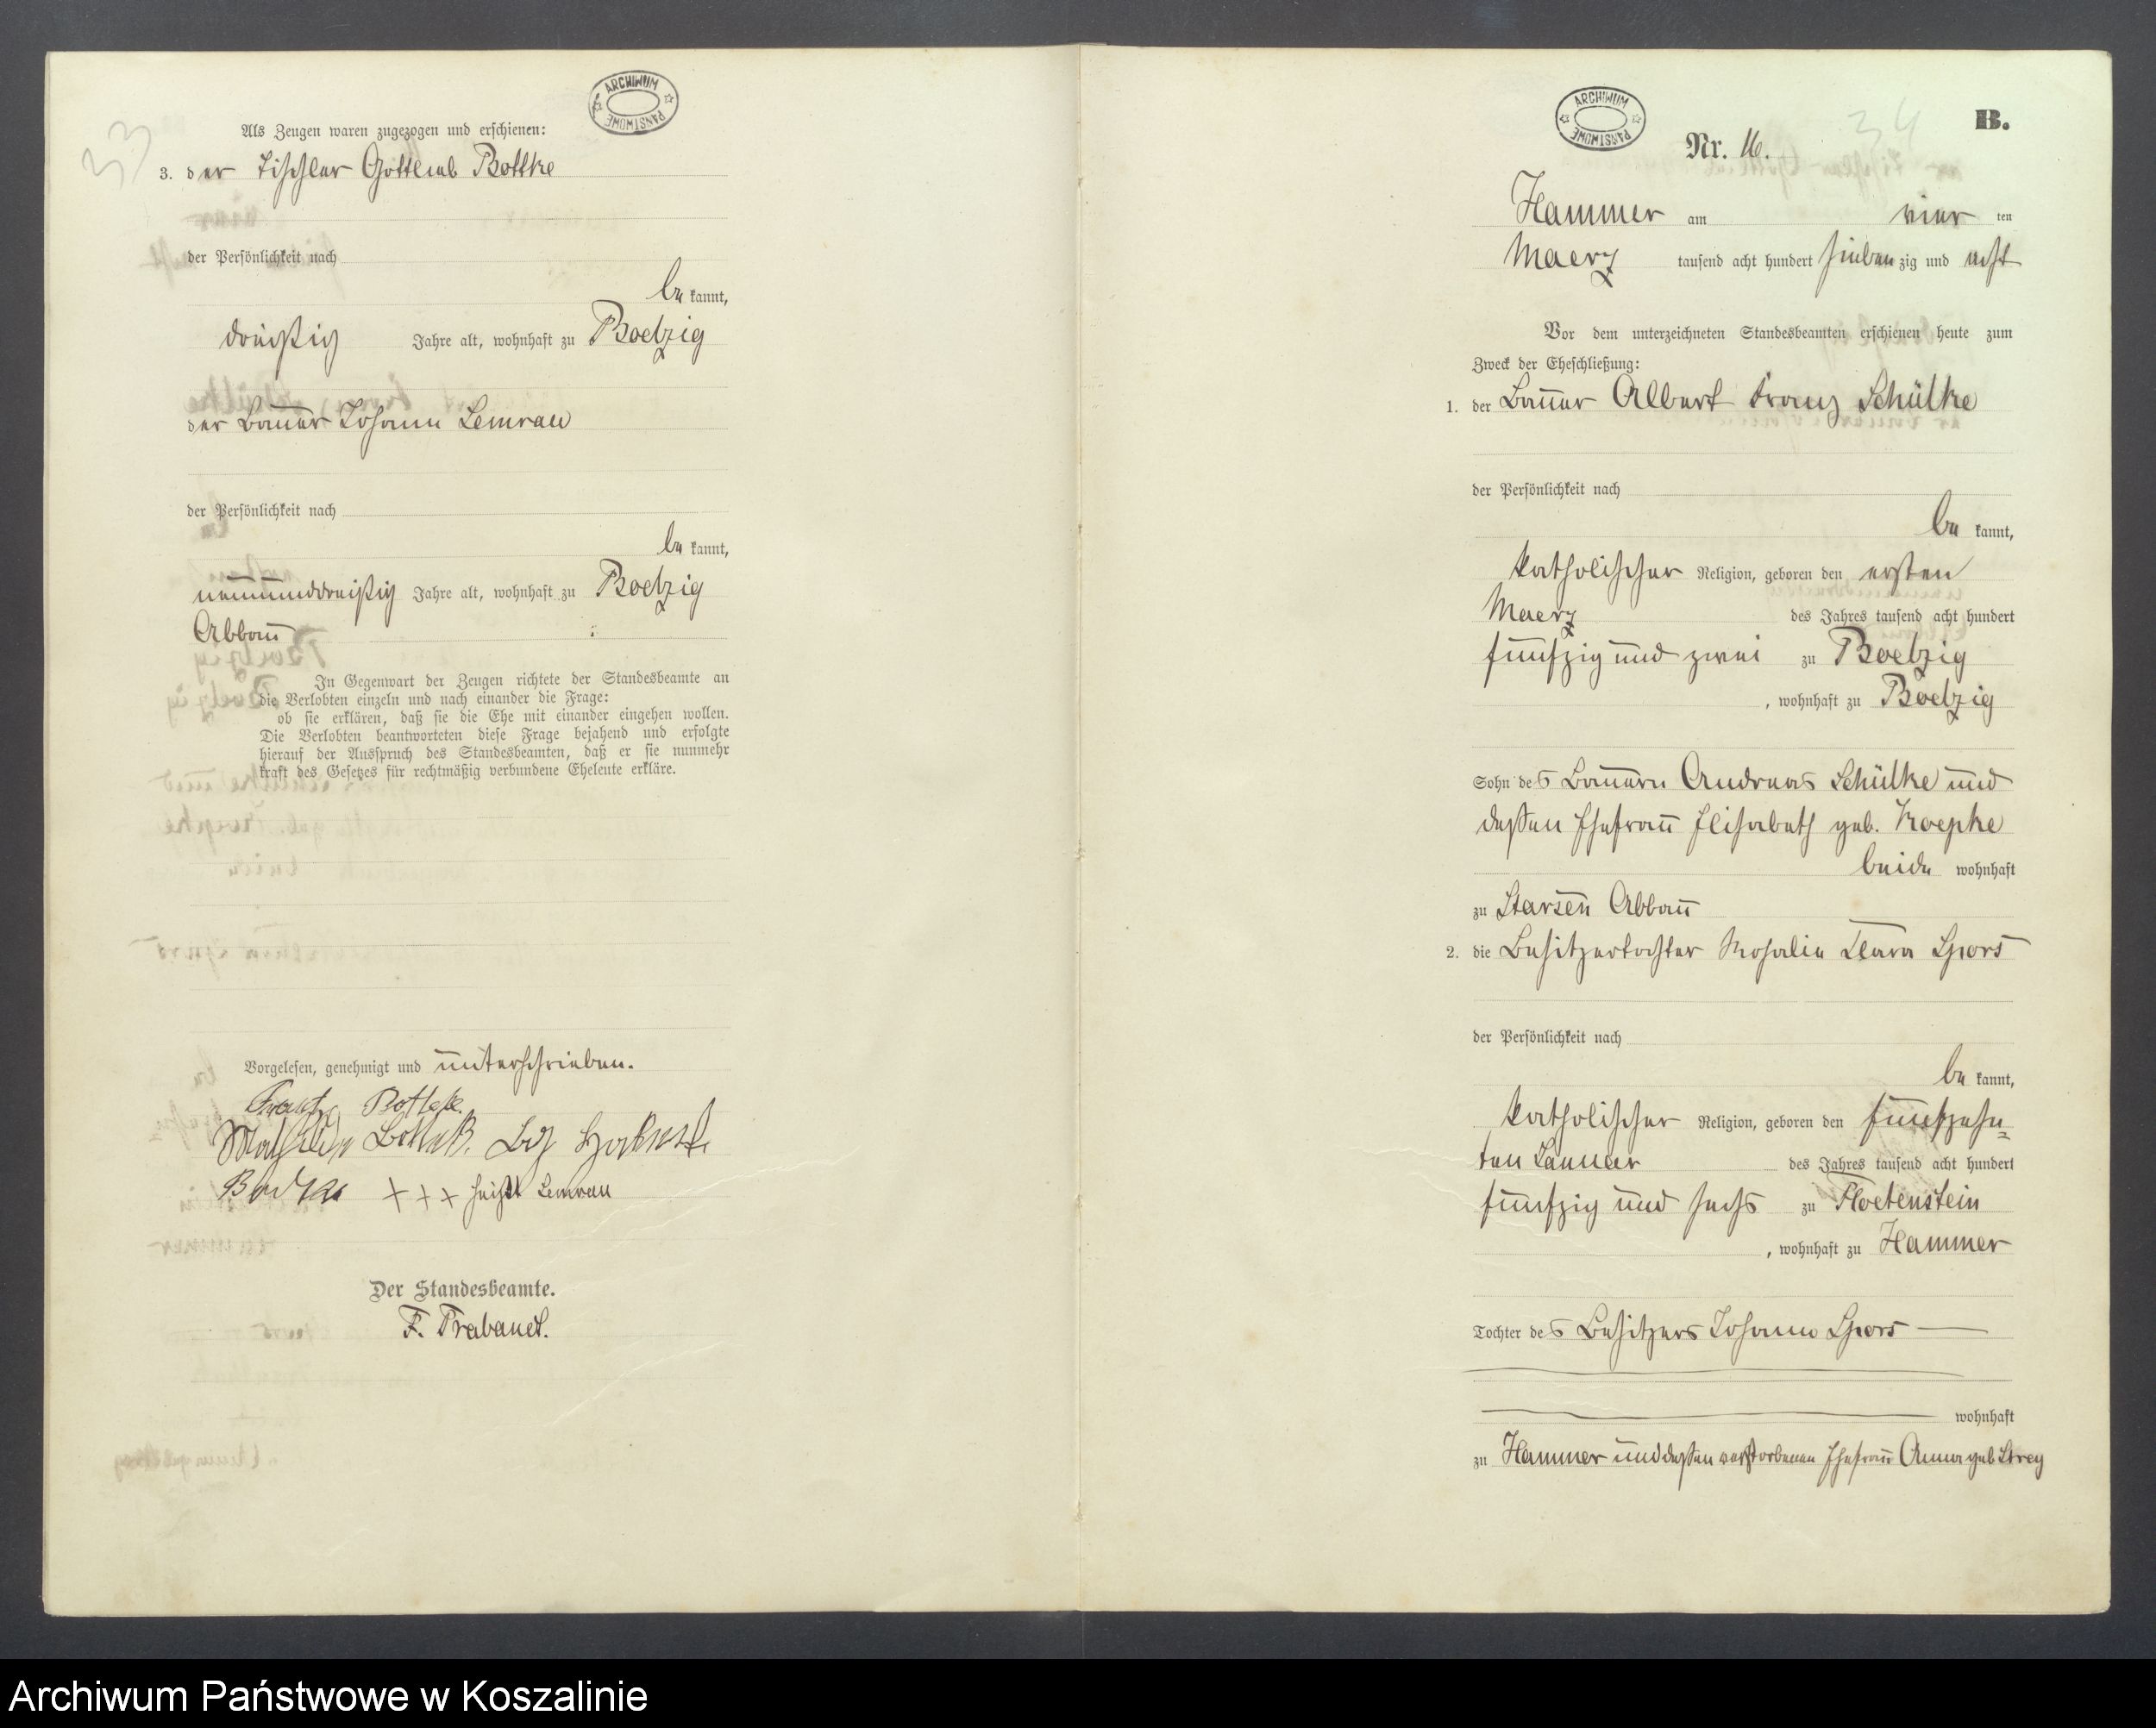 33
ARCHIWUM PAŃSTWOWE
Als Zeugen waren zugezogen und erschienen:
3. der Tischler Gottlieb Bottke
der Persönlichkeit nach
be kannt,
dreißig Jahre alt, wohnhaft zu Boelzig
der Bauer Johann Lemrau
der Persönlichkeit nach
be kannt,
neununddreißig Jahre alt, wohnhaft zu Boelzig
Abbau
In Gegenwart der Zeugen richtete der Standesbeamte an
die Verlobten einzeln und nach einander die Frage:
ob sie erklären, daß sie die Ehe mit einander eingehen wollen.
Die Verlobten beantworteten diese Frage bejahend und erfolgte
hierauf der Ausspruch des Standesbeamten, daß er sie nunmehr
kraft des Gesetzes für rechtmäßig verbundene Eheleute erkläre.
Vorgelesen, genehmigt und unterschrieben.
+++ heißt Lemrau
Der Standesbeamte.
F. Trabandt.
ARCHIWUM PAŃSTWOWE
34
B.
Nr. 16.
Hammer am vier ten
Maerz tausend acht hundert sieben zig und acht
Vor dem unterzeichneten Standesbeamten erschienen heute zum
Zweck der Eheschließung:
1. der Bauer Albert Franz Schülke
der Persönlichkeit nach
be kannt,
katholischer Religion, geboren den ersten
Maerz des Jahres tausend acht hundert
fünfzig und zwei zu Boelzig
, wohnhaft zu Boelzig
Sohn des Bauern Andreas Schülke und
deßen Ehefrau Elisabeth geb. Koepke
beide wohnhaft
zu Starsen Abbau
2. die Besitzertochter Rosalie Clara Spors
der Persönlichkeit nach
be kannt,
katholischer Religion, geboren den fünfzehn=
ten Januar des Jahres tausend acht hundert
fünfzig und sechs zu Floetenstein
, wohnhaft zu Hammer
Tochter des Besitzers Johann Spors
wohnhaft
zu Hammer und deßen verstorbenen Ehefrau Anna geb Strey
Archiwum Państwowe w Koszalinie